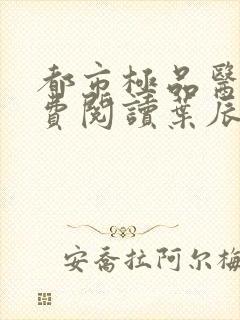 都市極品醫
費閱讀葉辰
安喬拉阿尔梅